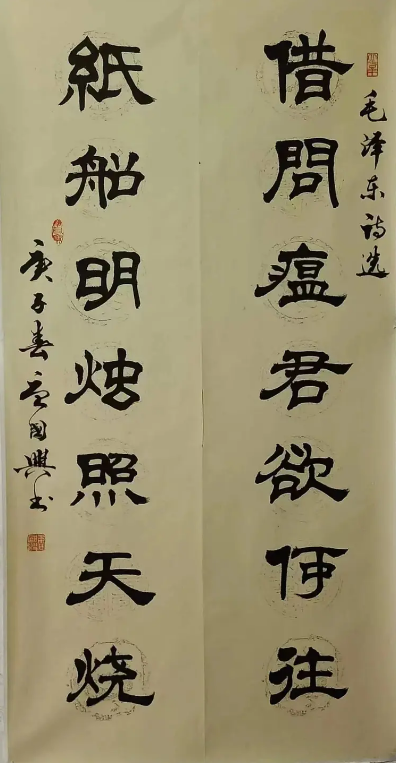 毛泽东诗选
借問瘟君欲何往
紙船明烛照天烧
庚子春国興书